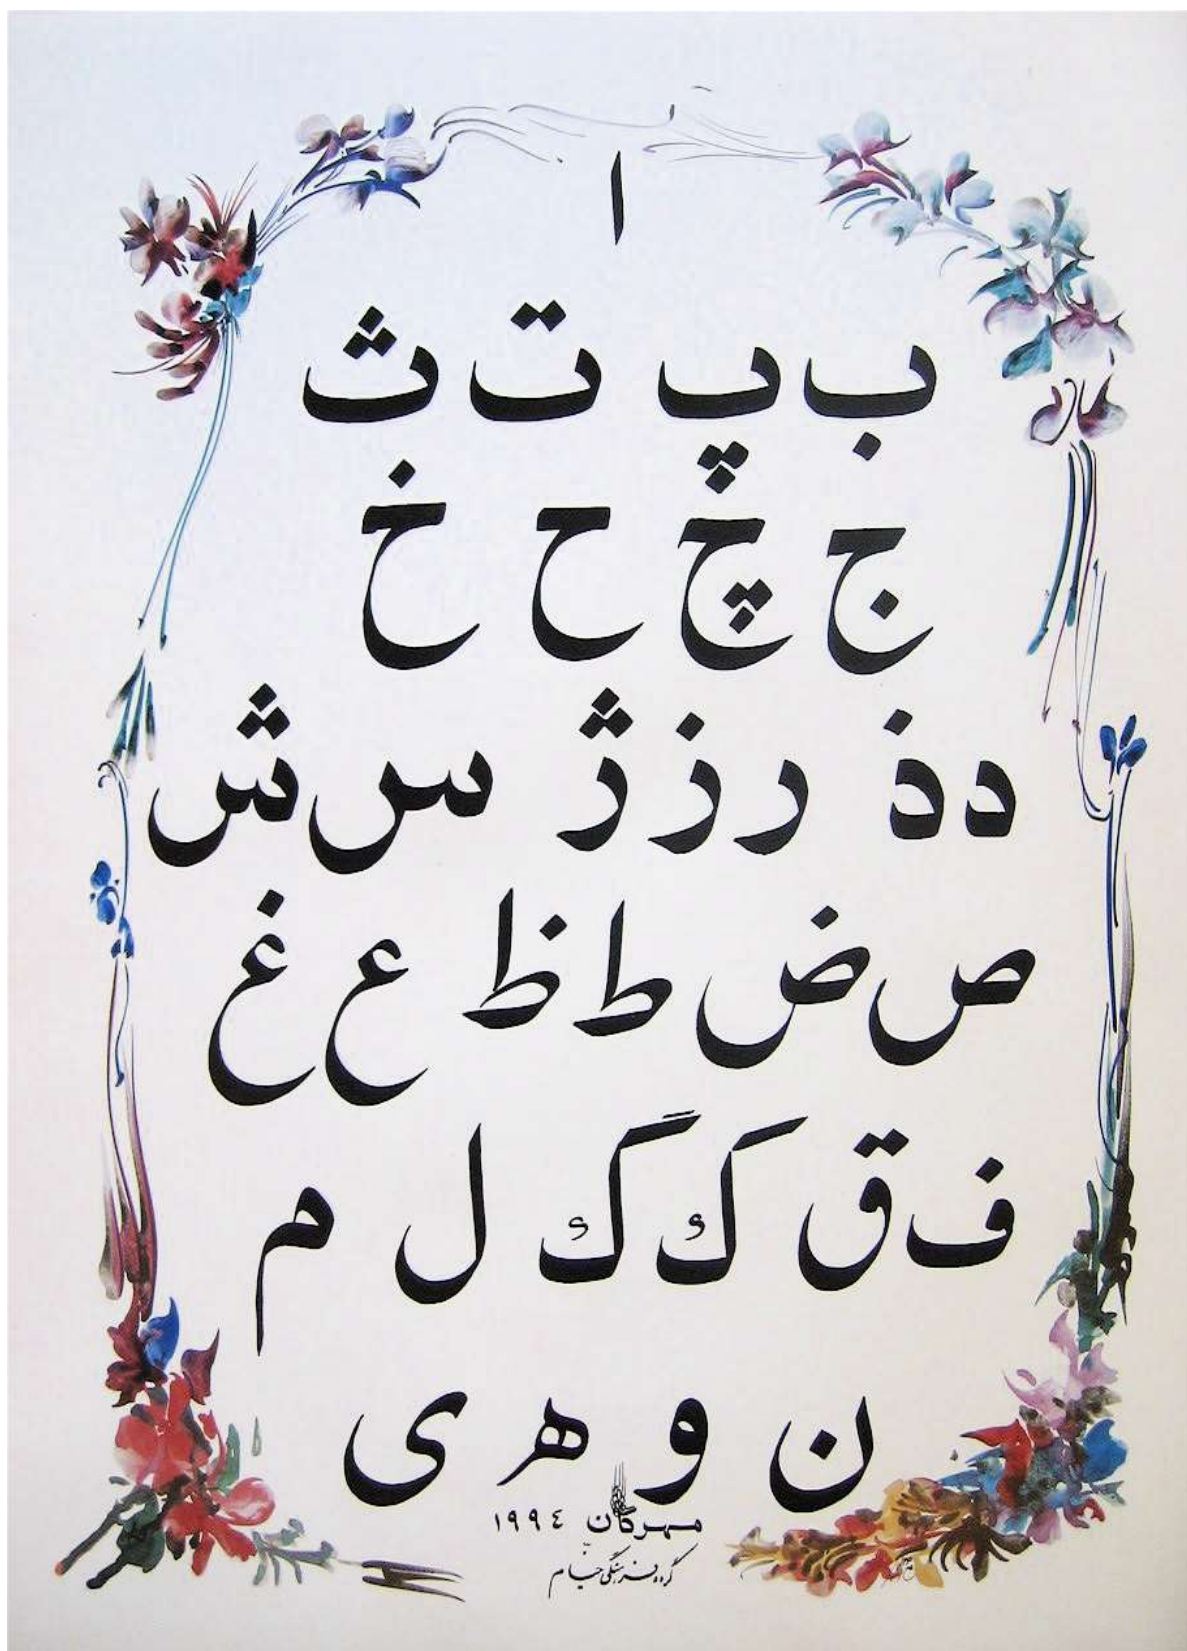 ا
ب پ ت ث
ج چ ح خ
د ذ ر ز ژ س ش
ص ض ط ظ ع غ
ف ق ک گ ل م
ن و ه ی
مهرگان ١٩٩٤
گروه فرهنگی خیام